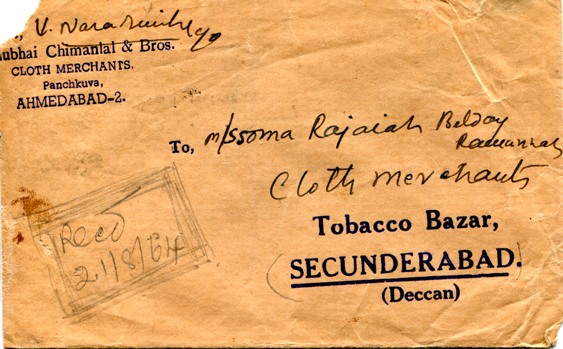 V. Narasimhly
ubhai Chimanlal & Bros.
CLOTH MERCHANTS.
Panchkuva,
AHMEDABAD-2.
To, M/s Soma Rajaiah Belday
Ramannah
Cloth merchants
Tobacco Bazar,
SECUNDERABAD.
(Deccan)
Recd
21/8/64